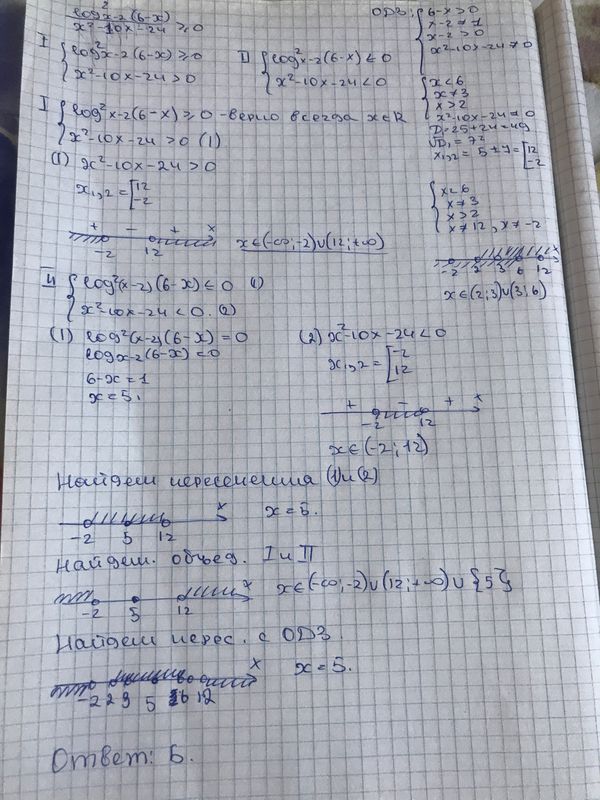 log²x-2(6-x)
x²-10x-24 ≥0
ОДЗ: { 6-x>0
x-2≠1
x-2>0
x²-10x-24≠0
I { log²x-2(6-x)≥0
x²-10x-24>0
II { log²x-2(6-x)≤0
x²-10x-24<0
{ x<6
x≠3
x>2
x²-10x-24=0
D₁=25+24=49
√D₁=7²
x₁,₂=5±7=[12
-2
I { log²x-2(6-x)≥0 -верно всегда x∈R
x²-10x-24>0 (1)
(1) x²-10x-24>0
x₁,₂=[12
-2
{ x<6
x≠3
x>2
x≠12, x≠-2
+ - + x
-2 12
x∈(-∞;-2)∪(12;+∞)
-2 2 3 6 12 x
x∈(2;3)∪(3;6)
II { log²(x-2)(6-x)≤0 (1)
x²-10x-24<0. (2)
(1) log²(x-2)(6-x)=0
logx-2(6-x)=0
6-x=1
x=5.
(2) x²-10x-24<0
x₁,₂=[-2
12
+ - + x
-2 12
x∈(-2;12)
Найдем пересечения (1)и(2)
-2 5 12 x
x=5.
Найдем. объед. I и II
-2 5 12 x
x∈(-∞;-2)∪(12;+∞)∪{5}
Найдем перес. с ОДЗ.
-2 2 3 5 6 12 x
x=5.
Ответ: 5.